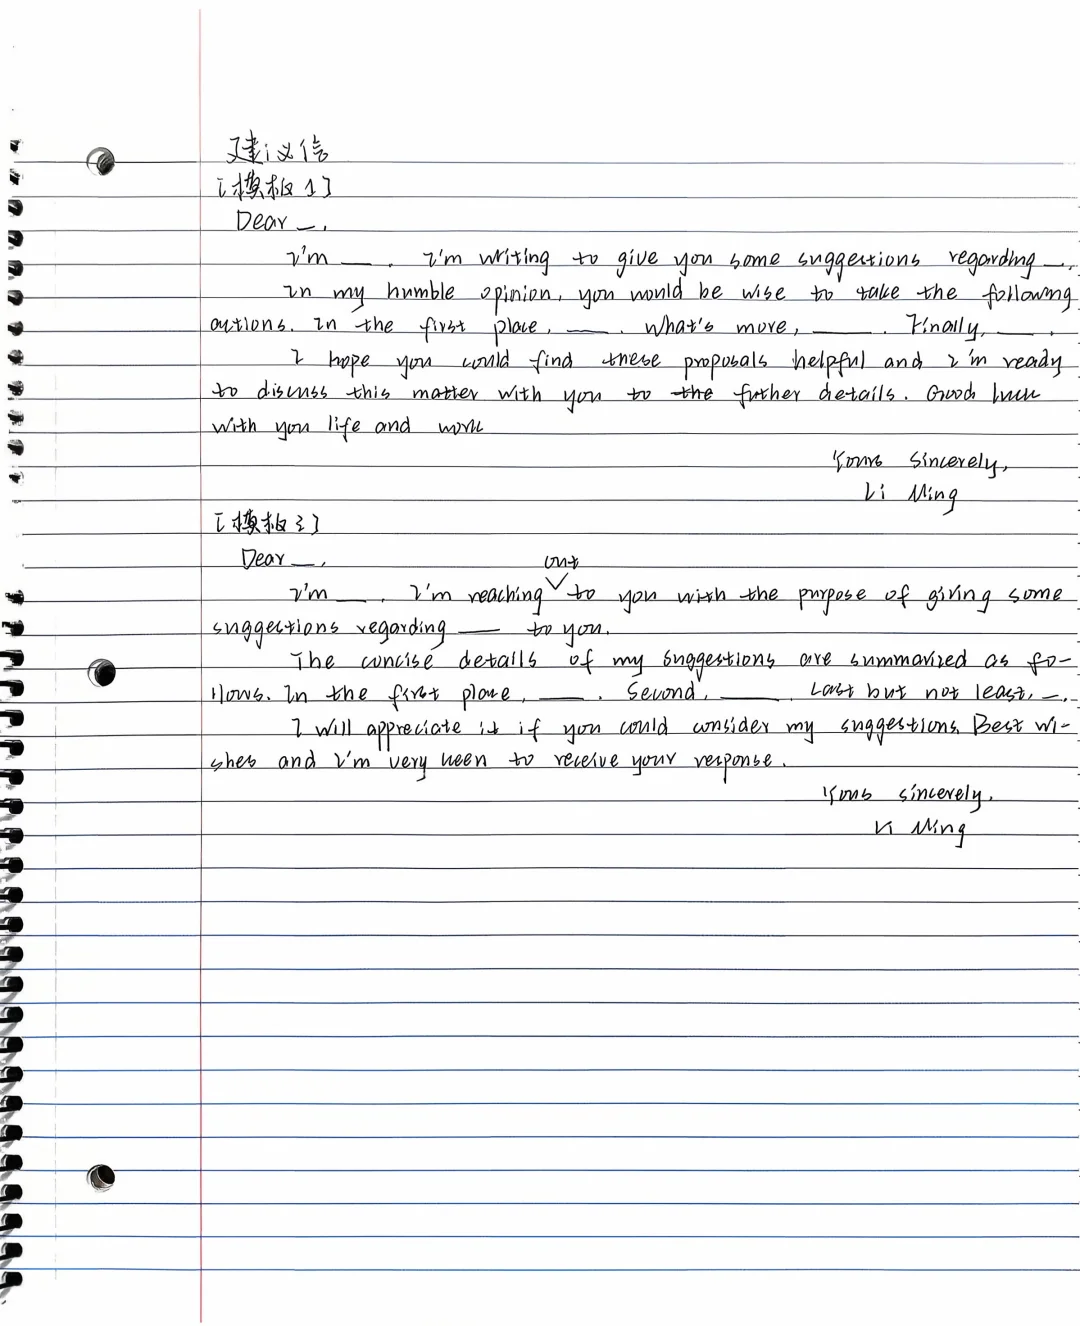 建议信
[模板1]
Dear __,
I'm ___. I'm writing to give you some suggestions regarding __.
In my humble opinion, you would be wise to take the following
actions. In the first place, ___. What's more, ___. Finally, ___.
I hope you could find these proposals helpful and I'm ready
to discuss this matter with you to the futher details. Good luck
with you life and work
Yours sincerely,
Li Ming
[模板2]
Dear __,
I'm ___. I'm reaching out to you with the purpose of giving some
suggestions regarding ___ to you.
The concise details of my suggestions are summarized as fo-
llows. In the first place, ___. Second, ___. Last but not least, __.
I will appreciate it if you could consider my suggestions. Best wi-
shes and I'm very keen to receive your response.
Yours sincerely,
Li Ming